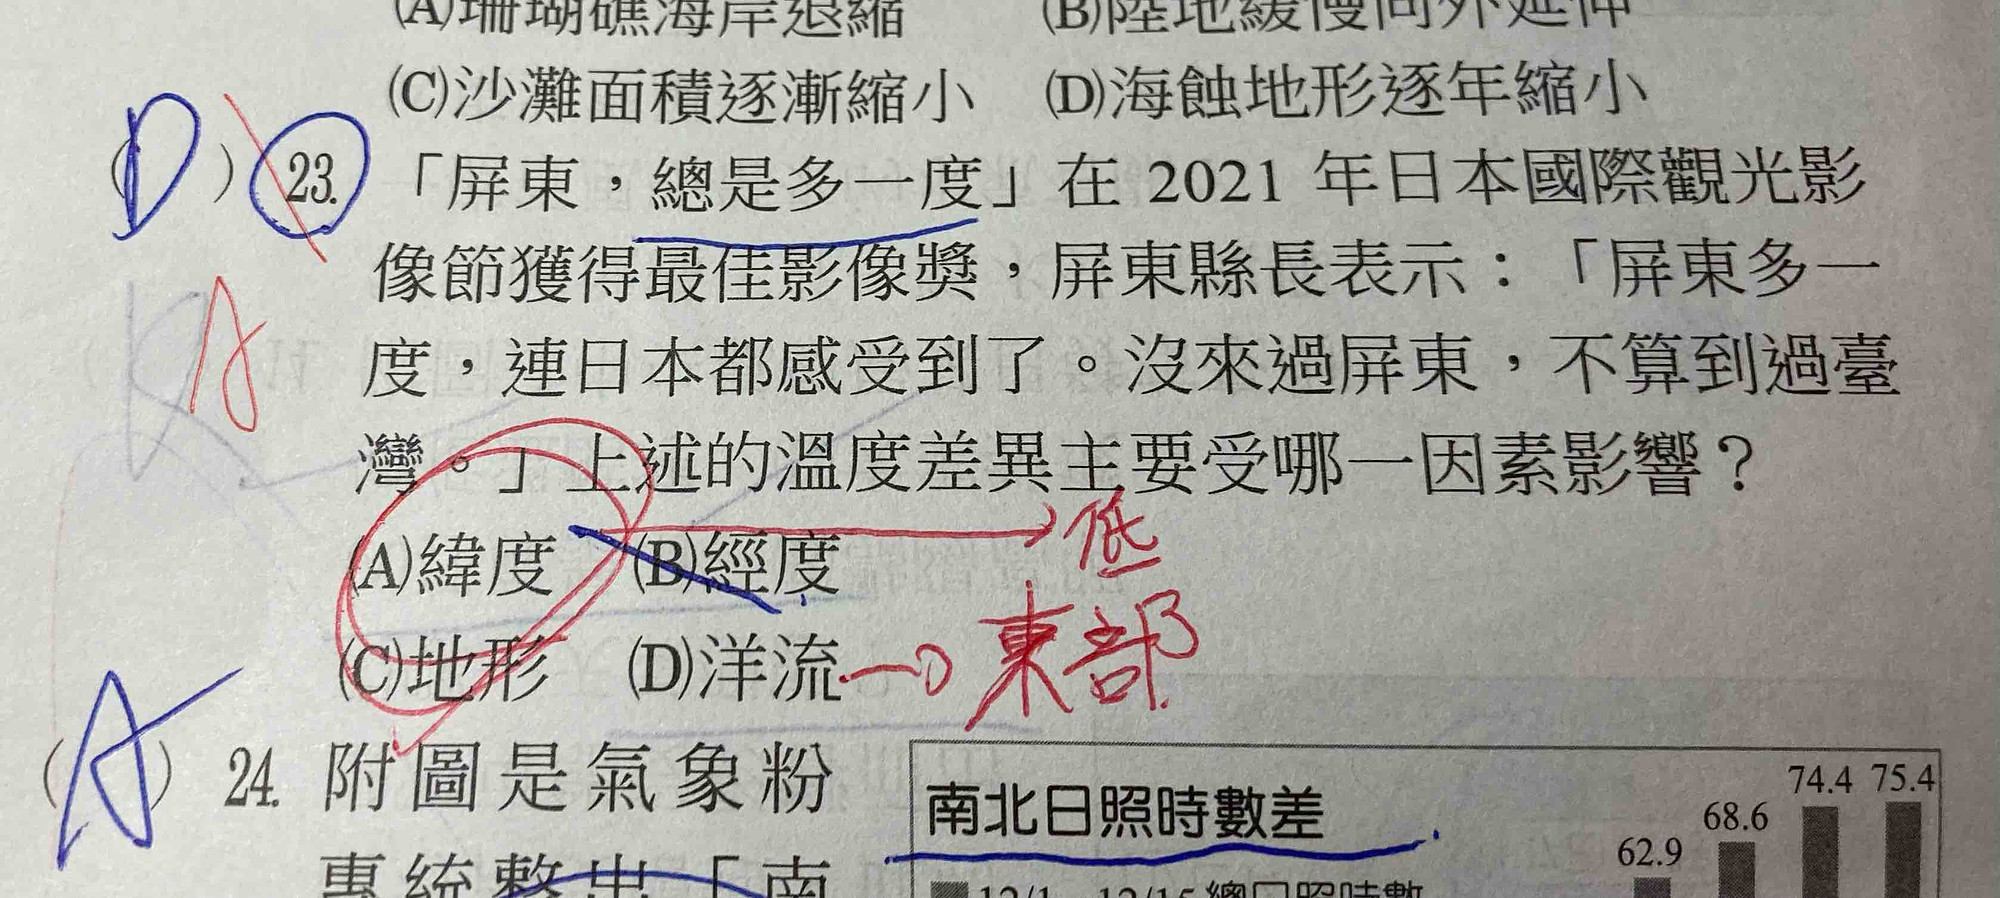 (A)珊瑚礁海岸退縮 (B)陸地緩慢向外延伸
(C)沙灘面積逐漸縮小 (D)海蝕地形逐年縮小
(D) 23. 「屏東，總是多一度」在 2021 年日本國際觀光影
像節獲得最佳影像獎，屏東縣長表示：「屏東多一
A
度，連日本都感受到了。沒來過屏東，不算到過臺
灣。」上述的溫度差異主要受哪一因素影響？
(A)緯度 (B)經度 → 低
(C)地形 (D)洋流 → 東部
(A) 24. 附圖是氣象粉
專統整出「南
南北日照時數差
62.9 68.6 74.4 75.4
12/1 12/15總日照時數